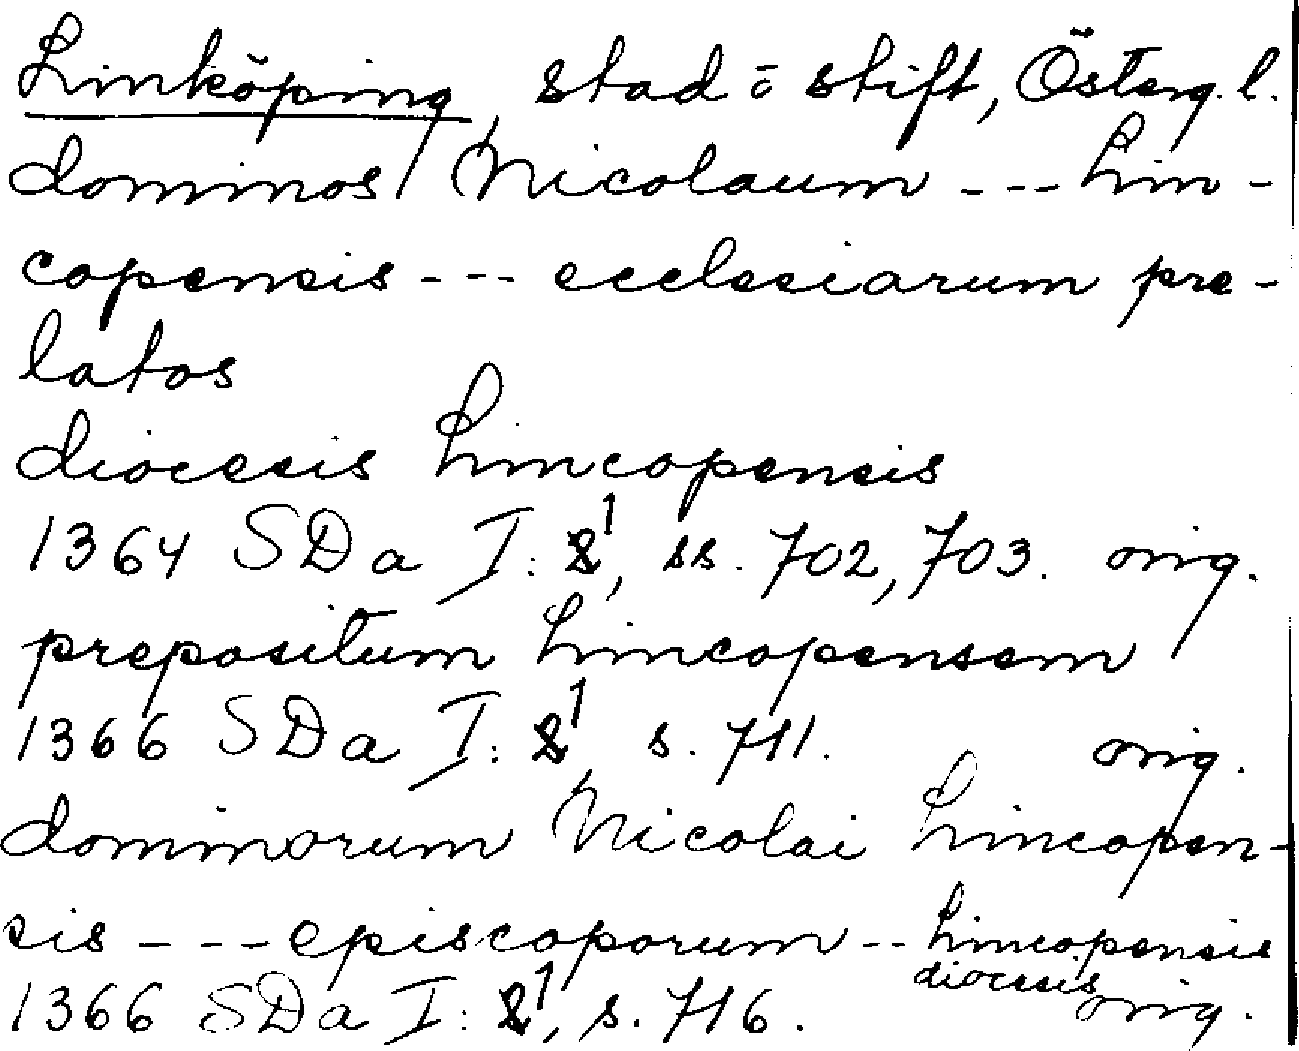 Linköping, stad o stift, Österg. l.
dominos Nicolaum --- Lin-
copensis --- ecclesiarum pre-
latos
diocesis Lincopensis
1364 SDa I: 1, ss. 702, 703. orig.
prepositum Lincopensem
1366 SDa I: 1, s. 711. orig.
dominorum Nicolai Lincopen-
sis --- episcoporum -- Lincopensis
diocesis
1366 SDa I: 1, s. 716. orig.